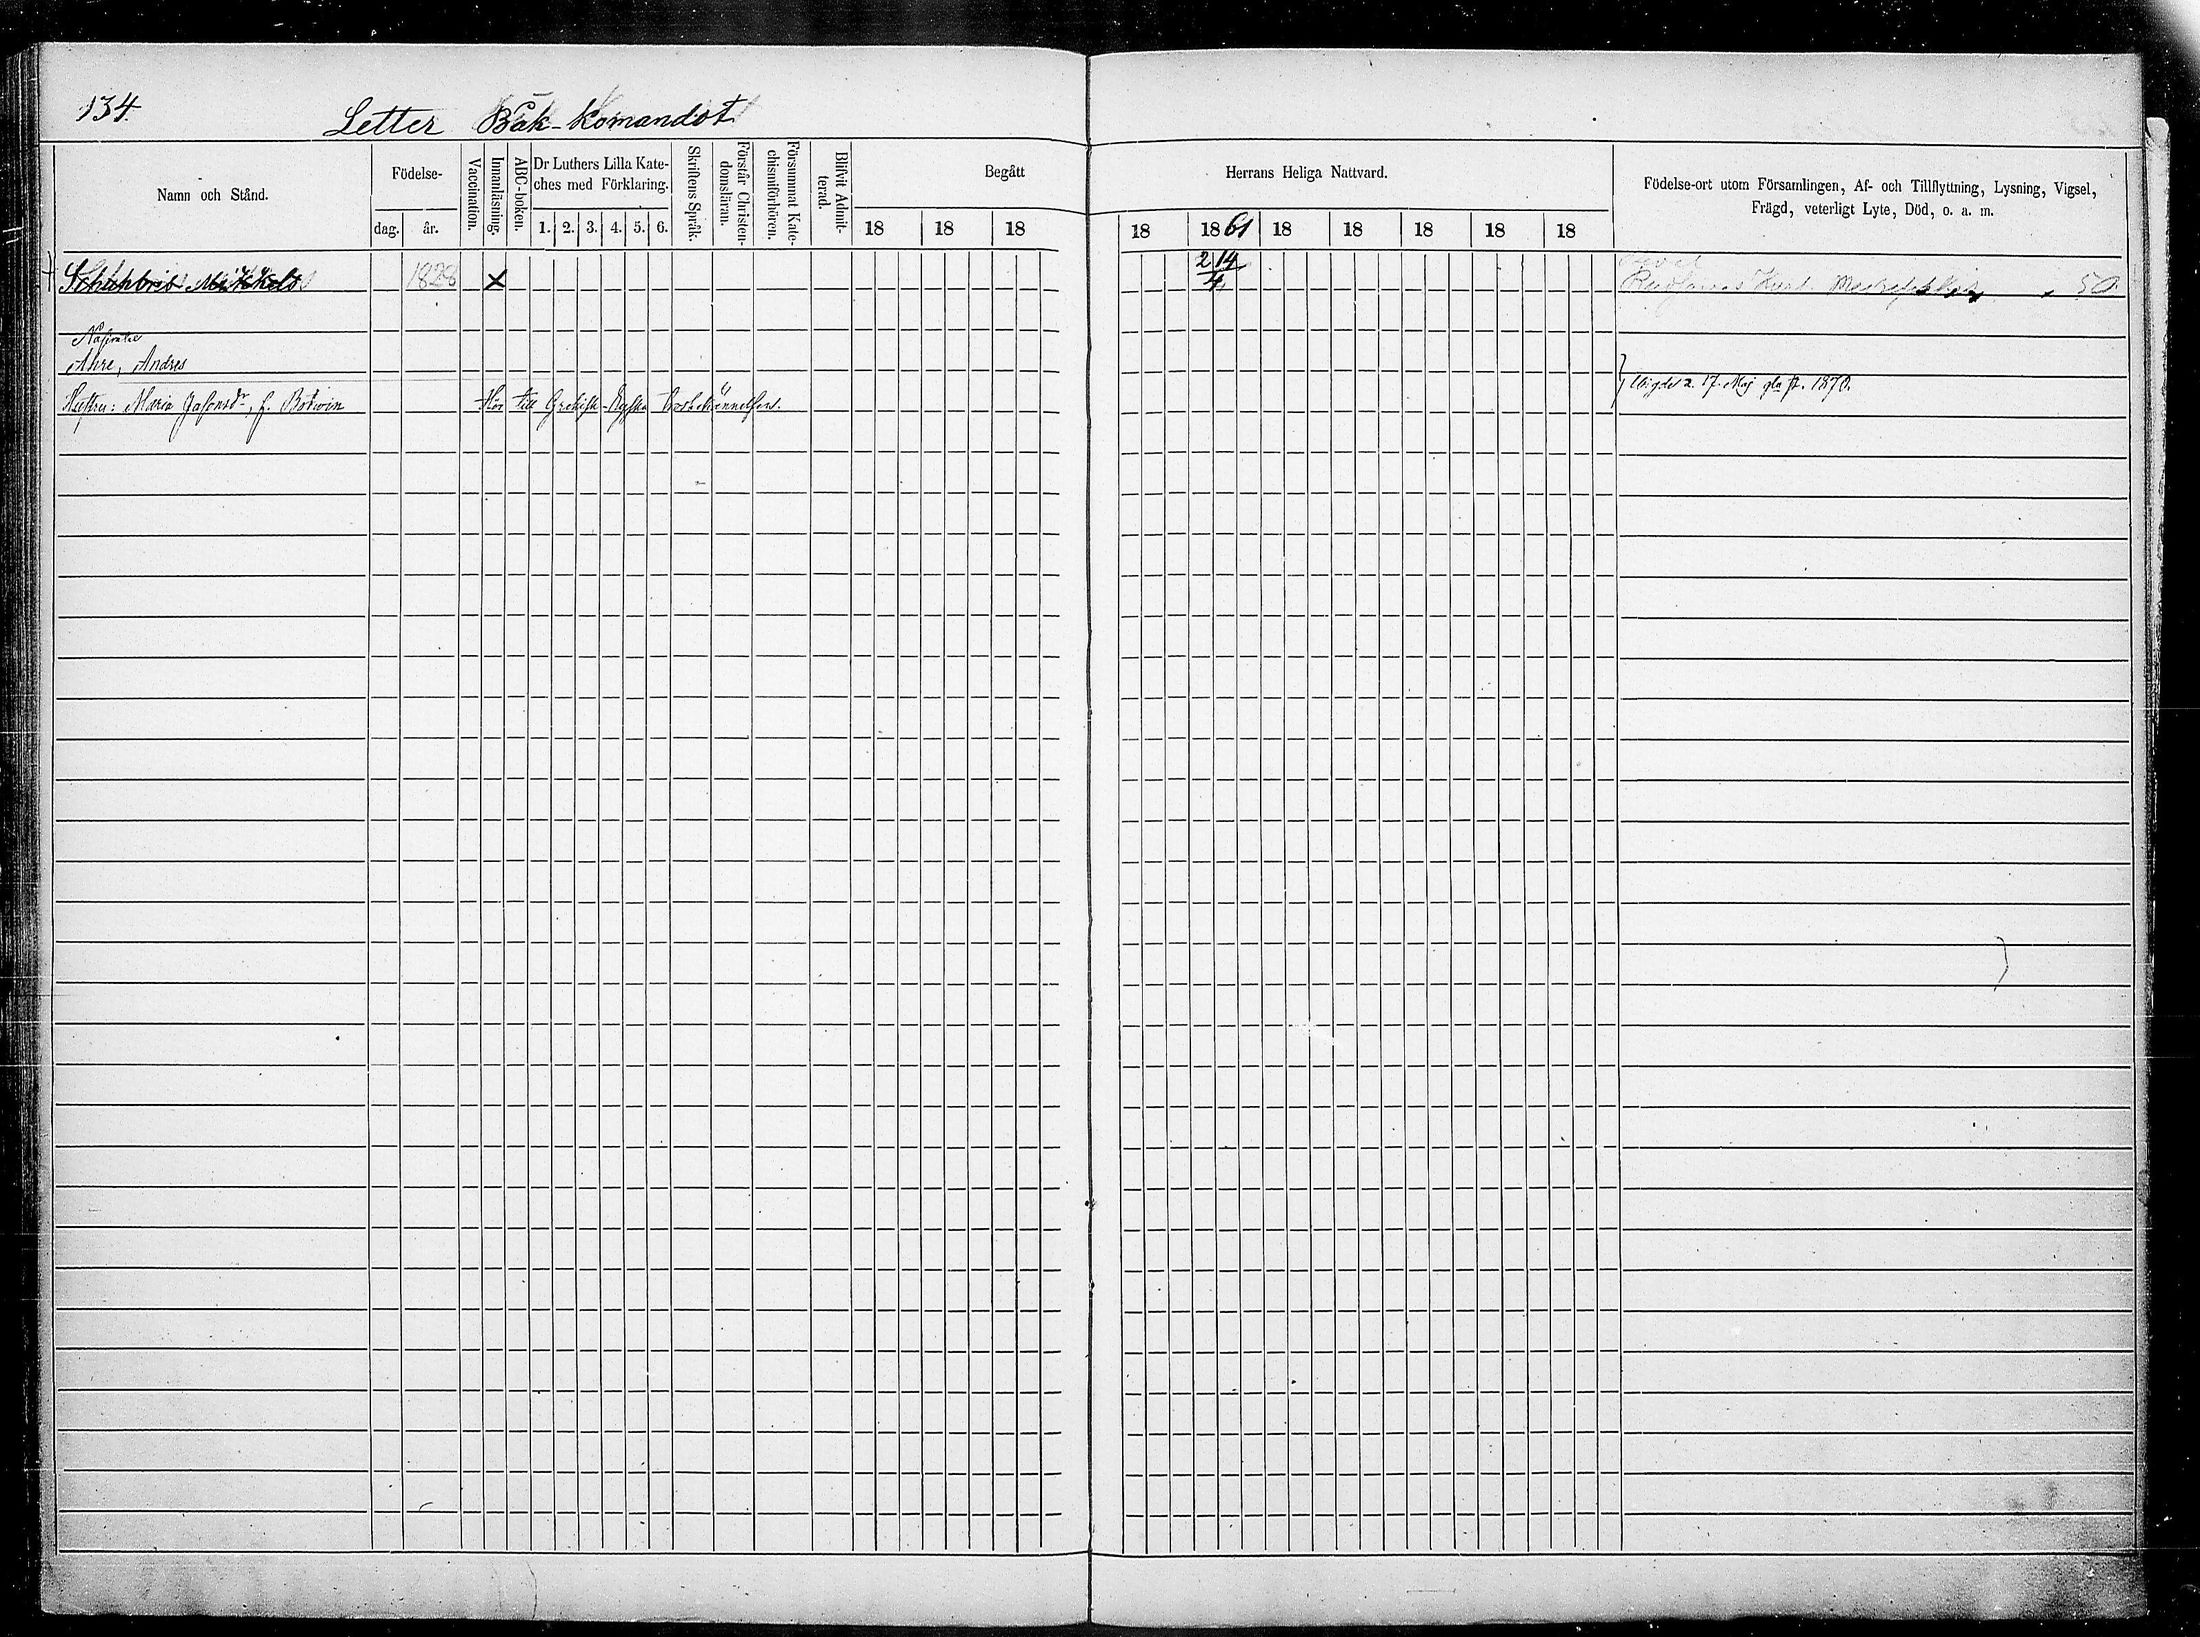 134.
Letter Båk-Komandot
Namn och Stånd.
Födelse-
dag.
år.
Vaccination.
Innanläsning.
ABC-boken.
Dr Luthers Lilla Kate-
ches med Förklaring.
1. 2. 3. 4. 5. 6.
Skriftens Språk.
Förstår Christen-
domsläran.
Försummat Kate-
chismiförhören.
Blifvit Admit-
terad.
Begått
18 18 18
Herrans Heliga Nattvard.
18 1861 18 18 18 18 18
Födelse-ort utom Församlingen, Af- och Tillflyttning, Lysning, Vigsel,
Frägd, veterligt Lyte, Död, o. a. m.
Mikkel 1828 x 2 14/4 50.
Ahre, Andres
Hustru: Maria f. Botwin Hör till Grekisk-Ryska
Vigde 2. 17. Maj 1870.